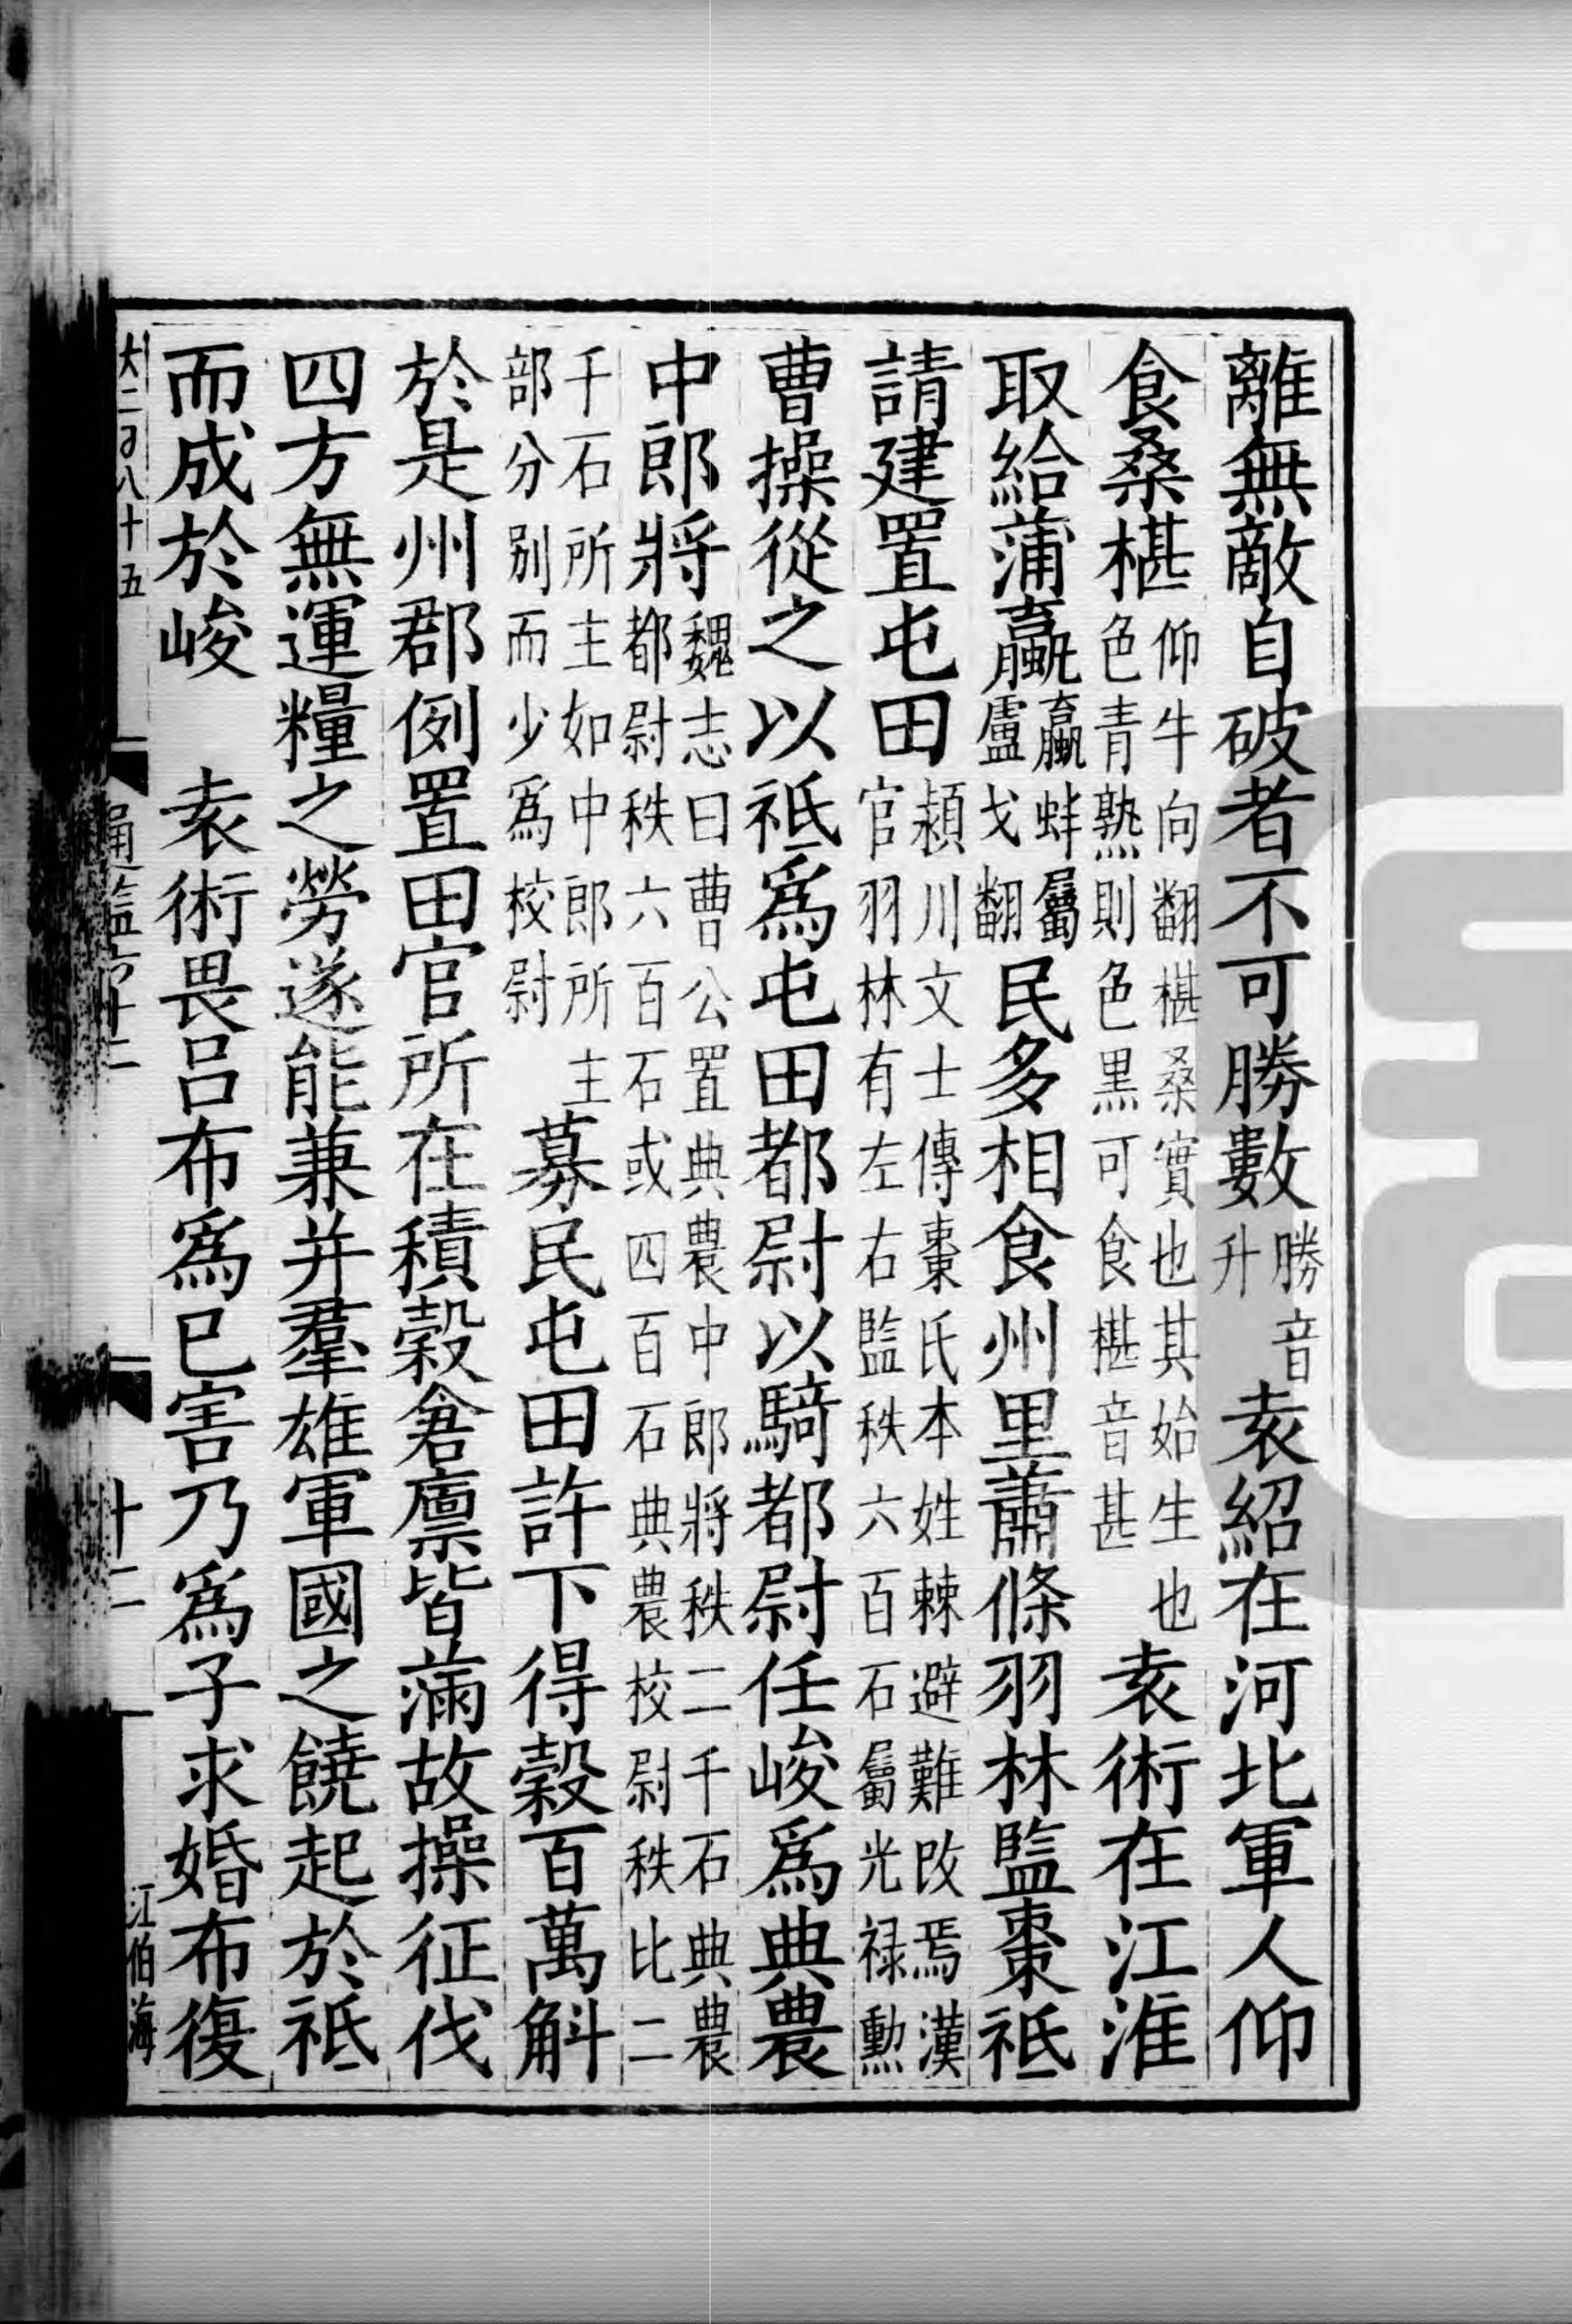 離無敵自破者不可勝數勝音升袁紹在河北軍人仰
食桑椹仰牛向翻椹桑實也其始生也色青熟則色黒可食椹音甚袁術在江淮
取給蒲蠃蠃蚌屬盧戈翻民多相食州里蕭條羽林監棗祗
請建置屯田潁川文士傳棗氏本姓棘避難改焉漢官羽林有左右監秩六百石屬光禄勲
曹操從之以祗爲屯田都尉以騎都尉任峻爲典農
中郎將魏志曰曹公置典農中郎將秩二千石典農都尉秩六百石或四百石典農校尉秩比二
千石所主如中郎所主部分别而少爲校尉募民屯田許下得穀百萬斛
於是州郡例置田官所在積穀倉廩皆滿故操征伐
四方無運糧之勞遂能兼并羣雄軍國之饒起於祗
而成於峻　袁術畏呂布爲已害乃爲子求婚布復
大二百八十五
通鑑六十二
十二
江伯海